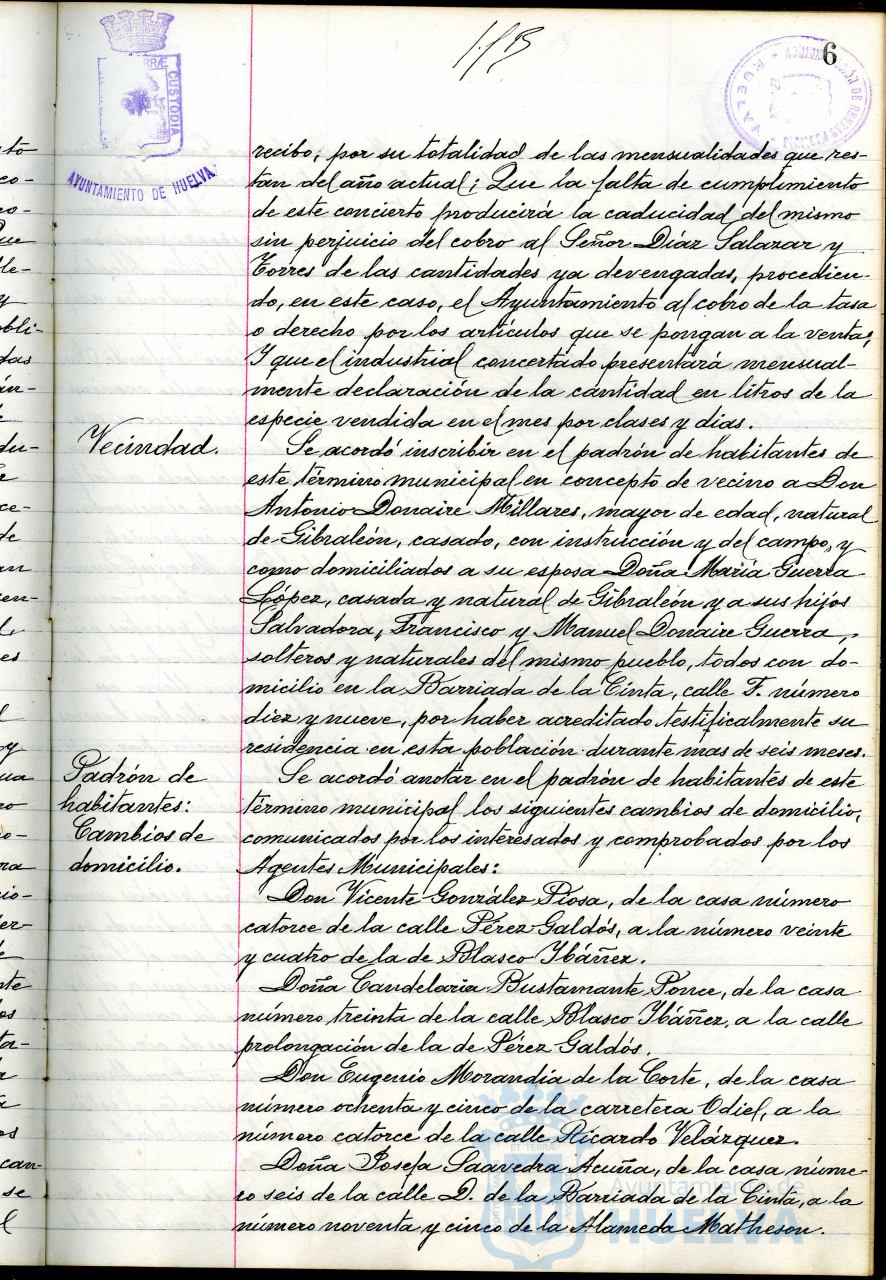 6
CUSTODIA
AYUNTAMIENTO DE HUELVA
recibo, por su totalidad de las mensualidades que res-
tan del año actual; Que la falta de cumplimiento
de este concierto producirá la caducidad del mismo
sin perjuicio del cobro al Señor Díaz Salazar y
Torres de las cantidades ya devengadas, procedien-
do, en este caso, el Ayuntamiento al cobro de la tasa
o derecho por los artículos que se pongan a la venta;
Y que el industrial concertado presentará mensual-
mente declaración de la cantidad en litros de la
especie vendida en el mes por clases y dias.
Vecindad.
Se acordó inscribir en el padrón de habitantes de
este término municipal en concepto de vecino a Don
Antonio Donaire Millares, mayor de edad, natural
de Gibraleón, casado, con instrucción y del campo, y
como domiciliados a su esposa Doña María Guerra
López, casada y natural de Gibraleón y a sus hijos
Salvadora, Francisco y Manuel Donaire Guerra,
solteros y naturales del mismo pueblo, todos con do-
micilio en la Barriada de la Cinta, calle F. número
diez y nueve, por haber acreditado testificalmente su
residencia en esta población durante mas de seis meses.
Padrón de
habitantes:
Cambios de
domicilio.
Se acordó anotar en el padrón de habitantes de este
término municipal los siguientes cambios de domicilio,
comunicados por los interesados y comprobados por los
Agentes Municipales:
Don Vicente González Piosa, de la casa número
catorce de la calle Pérez Galdós, a la número veinte
y cuatro de la de Blasco Ibáñez.
Doña Candelaria Bustamante Ponce, de la casa
número treinta de la calle Blasco Ibáñez, a la calle
prolongación de la de Pérez Galdós.
Don Eugenio Morandia de la Corte, de la casa
número ochenta y cinco de la carretera Odiel, a la
número catorce de la calle Ricardo Velázquez.
Doña Josefa Saavedra Acuña, de la casa núme-
ro seis de la calle D. de la Barriada de la Cinta, a la
número noventa y cinco de la Alameda Matheson.
Ayuntamiento de
HUELVA